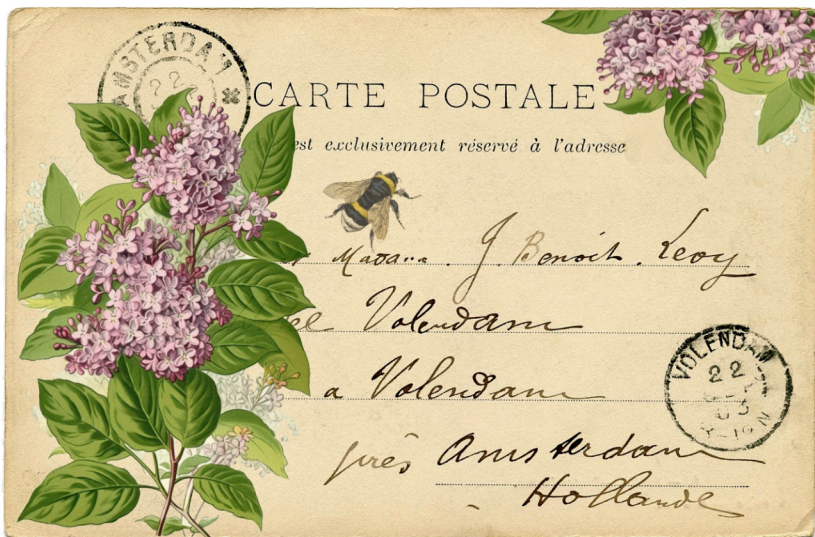 AMSTERDAM
22
CARTE POSTALE
est exclusivement réservé à l'adresse
Madame J. Benoit. Levy
Volendam
a Volendam
près Amsterdam
Hollande
VOLENDAM
22
03